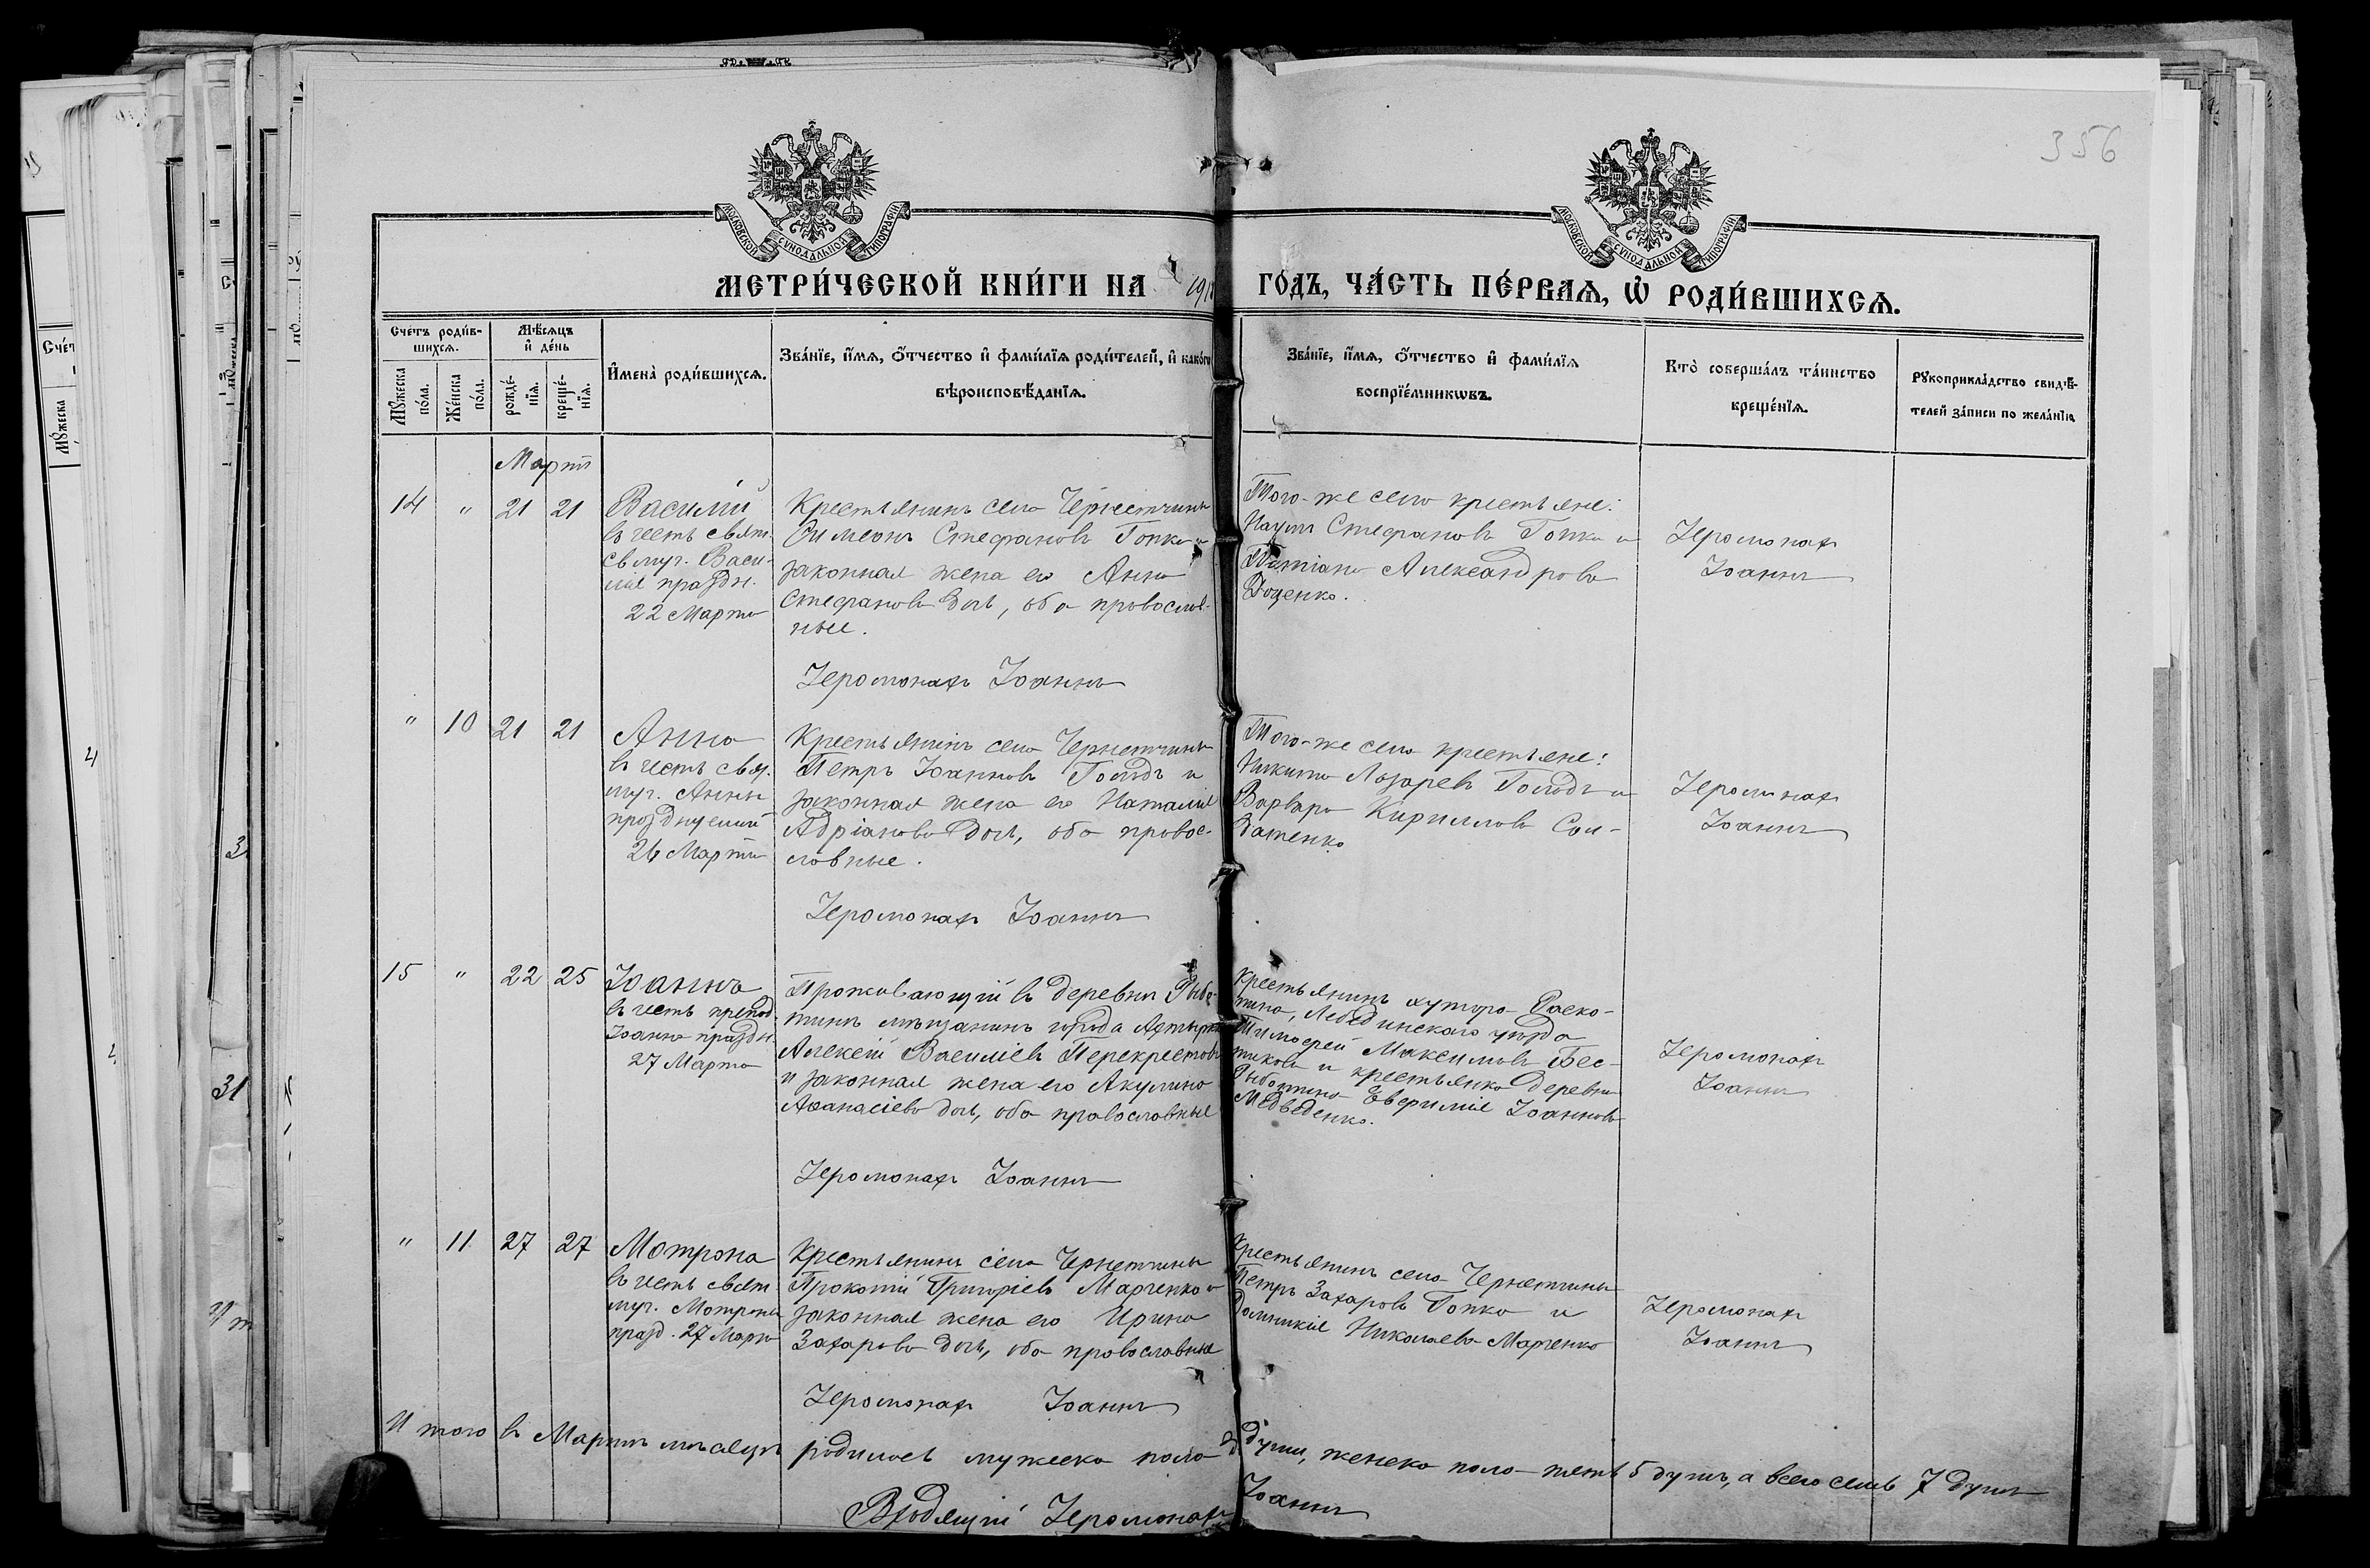 356
МОСКОВСКОЙ СѴНОДАЛЬНОЙ ТИПОГРАФІИ
МОСКОВСКОЙ СѴНОДАЛЬНОЙ ТИПОГРАФІИ
МЕТРИ́ЧЕСКОЙ КНИ́ГИ НА 191 ГО́ДЪ, ЧА́СТЬ ПЕ́РВАѦ, Ѡ РОДИ́ВШИХСѦ.
Сче́тъ роди́в-
шихсѧ.
Мꙋ́жеска
по́ла.
Же́нска
по́ла.
Мѣ́сѧцъ
и҆ де́нь
рожде́-
нїѧ.
креще́-
нїѧ.
И҆мена̀ роди́вшихсѧ.
Зва́нїе, и҆́мѧ, ѻ҆́тчество и҆ фами́лїѧ роди́телей, и҆ како́гѡ
вѣроисповѣ́данїѧ.
Зва́нїе, и҆́мѧ, ѻ҆́тчество и҆ фами́лїѧ
воспрїе́мникѡвъ.
Кто̀ соверша́лъ та́инство
креще́нїѧ.
Рꙋкоприкла́дство свидѣ́-
телей за́писи по жела́нїю
Мартъ
14 " 21 21
Василій
въ честь свят.
св. муч. Васи-
лія праздн.
22 Марта
Крестьянинъ села Чернетчины
Симеонъ Стефановъ Гопка и
законная жена его Анна
Стефанова доч., оба православ-
ные.
Іеромонахъ Іоаннъ
Того-же села крестьяне:
Наумъ Стефановъ Гопка и
Татіана Александрова
Доценко.
Іеромонахъ
Іоаннъ
" 10 21 21
Анна
въ честь свя.
муч. Анны
празднуемой
26 Марта
Крестьянинъ села Чернетчины
Петръ Іоанновъ Голодъ и
законная жена его Наталія
Адріанова доч., оба правос-
лавные.
Іеромонахъ Іоаннъ
Того-же села крестьяне:
Никита Лазаревъ Голодъ и
Варвара Кириллова Сол-
датенко
Іеромонахъ
Іоаннъ
15 " 22 25
Іоаннъ
въ честь препод.
Іоанна праздн.
27 Марта
Проживающій въ деревни Рыбо-
тинъ мѣщанинъ города Ахтырки
Алексѣй Василіевъ Перекрестовъ
и законная жена его Акулина
Аѳанасіева доч., оба православные
Іеромонахъ Іоаннъ
Крестьянинъ хутора Раско-
пина, Лебединскаго уѣзда
Тимоѳей Максимовъ Бес-
тиковъ и крестьянка деревни
Рыботина Евфимія Іоаннова
Медведенко.
Іеромонахъ
Іоаннъ
" 11 27 27
Мотрона
въ честь свят.
муч. Мотроны
празд. 27 Марта
Крестьянинъ села Чернетчины
Прокопій Григоріевъ Марченко и
законная жена его Ирина
Захарова доч., оба православные
Іеромонахъ Іоаннъ
Крестьянинъ села Чернетчины
Петръ Захаровъ Гопка и
Домникія Николаева Марченко
Іеромонахъ
Іоаннъ
Итого въ Мартѣ мѣсяцѣ родилось мужеска пола 2 души, женска пола пять 5 душъ, а всего семь 7 душъ
Входящій Іеромонахъ Іоаннъ